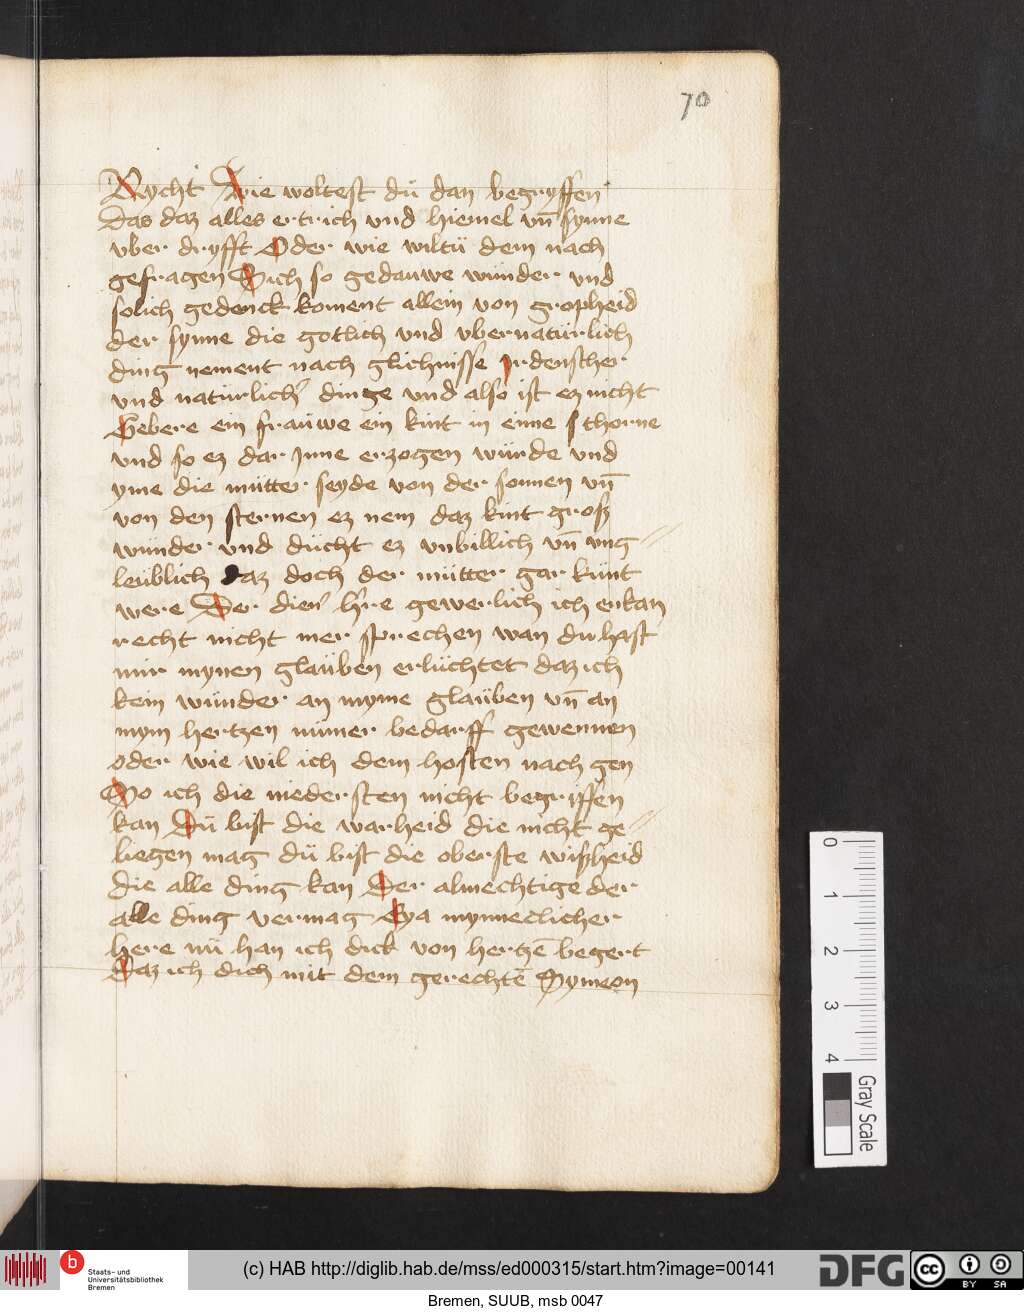 70
Nycht Wie woltest dü dan begryffen
das daz alles ertrich vnd hiemel vn̄ synne
vber dryfft Oder wie wiltü dem nach
gefragen Sich so gedauwe wünder vnd
solich gedenck koment allein von gropheid
der synne die gotlich vnd vbernatürlich
ding nement nach glichnisse Irdenscher
vnd natürlich' dinge vnd also ist ez nicht
Gebere ein fraüwe ein kint in eime thorne
vnd so ez dar Inne erzogen würde vnd
yme die mütter seyde von der sonnen vn̄
von den sternen ez nem daz kint groß
wünder vnd dücht ez vnbillich vn̄ vng//
leüblich daz doch der mütter gar künt
were Der dien' h're gewerlich ich enkan
recht nicht mer sprechen wan du hast
mir mynen glaüben erlüchtet daz ich
kein wünder an myme glaüben vn̄ an
mym hertzen nümer bedarff gewennen
oder wie wil ich dem hosten nach gen
So ich die niedersten nicht begriffen
kan Dü bist die warheid die nicht ge//
liegen mag dü bist die oberste wißheid
die alle ding kan Der almechtige der
alle ding vermag Eya mynneclicher
here nü han ich dick von hertzē begert
Daz ich dich mit dem gerechtē Symeon
0
1
2
3
4
Gray Scale
b
Staats- und
Universitätsbibliothek
Bremen
(c) HAB http://diglib.hab.de/mss/ed000315/start.htm?image=00141
DFG
cc
BY SA
Bremen, SUUB, msb 0047